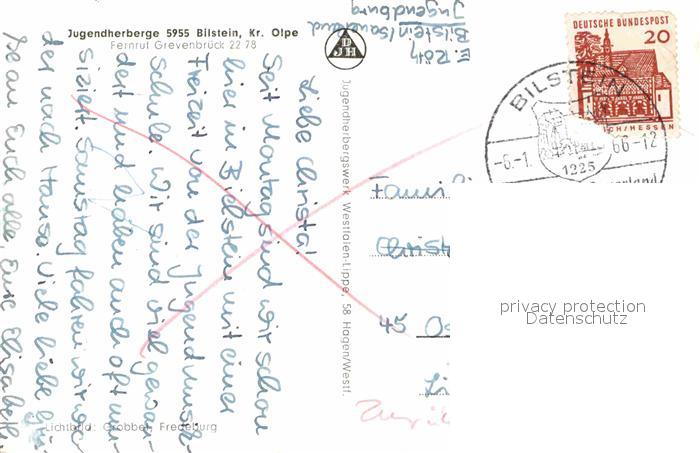 Jugendherberge 5955 Bilstein, Kr. Olpe
Fernruf Grevenbrück 22 78
Liebe Christa!
Seit Montag sind wir schon
hier in Bielstein mit einer
Freizeit von der Jugendmusik-
schule. Wir sind viel gewan-
dert und haben auch oft mu-
siziert. Samstag fahren wir wie-
der nach Hause. Viele liebe Grü
sse an Euch alle, Eure Elisabeth
Lichtbild: Grobbel, Fredeburg
DJH
Jugendherbergswerk Westfalen-Lippe, 58 Hagen/Westf.
E.
Bilstein/Sauerland
Jugendburg
DEUTSCHE BUNDESPOST
20
CH/HESSEN
BILSTEIN
-6.-1
66-12
1225
Fami
Christ
45 Os
Zurü
privacy protection
Datenschutz